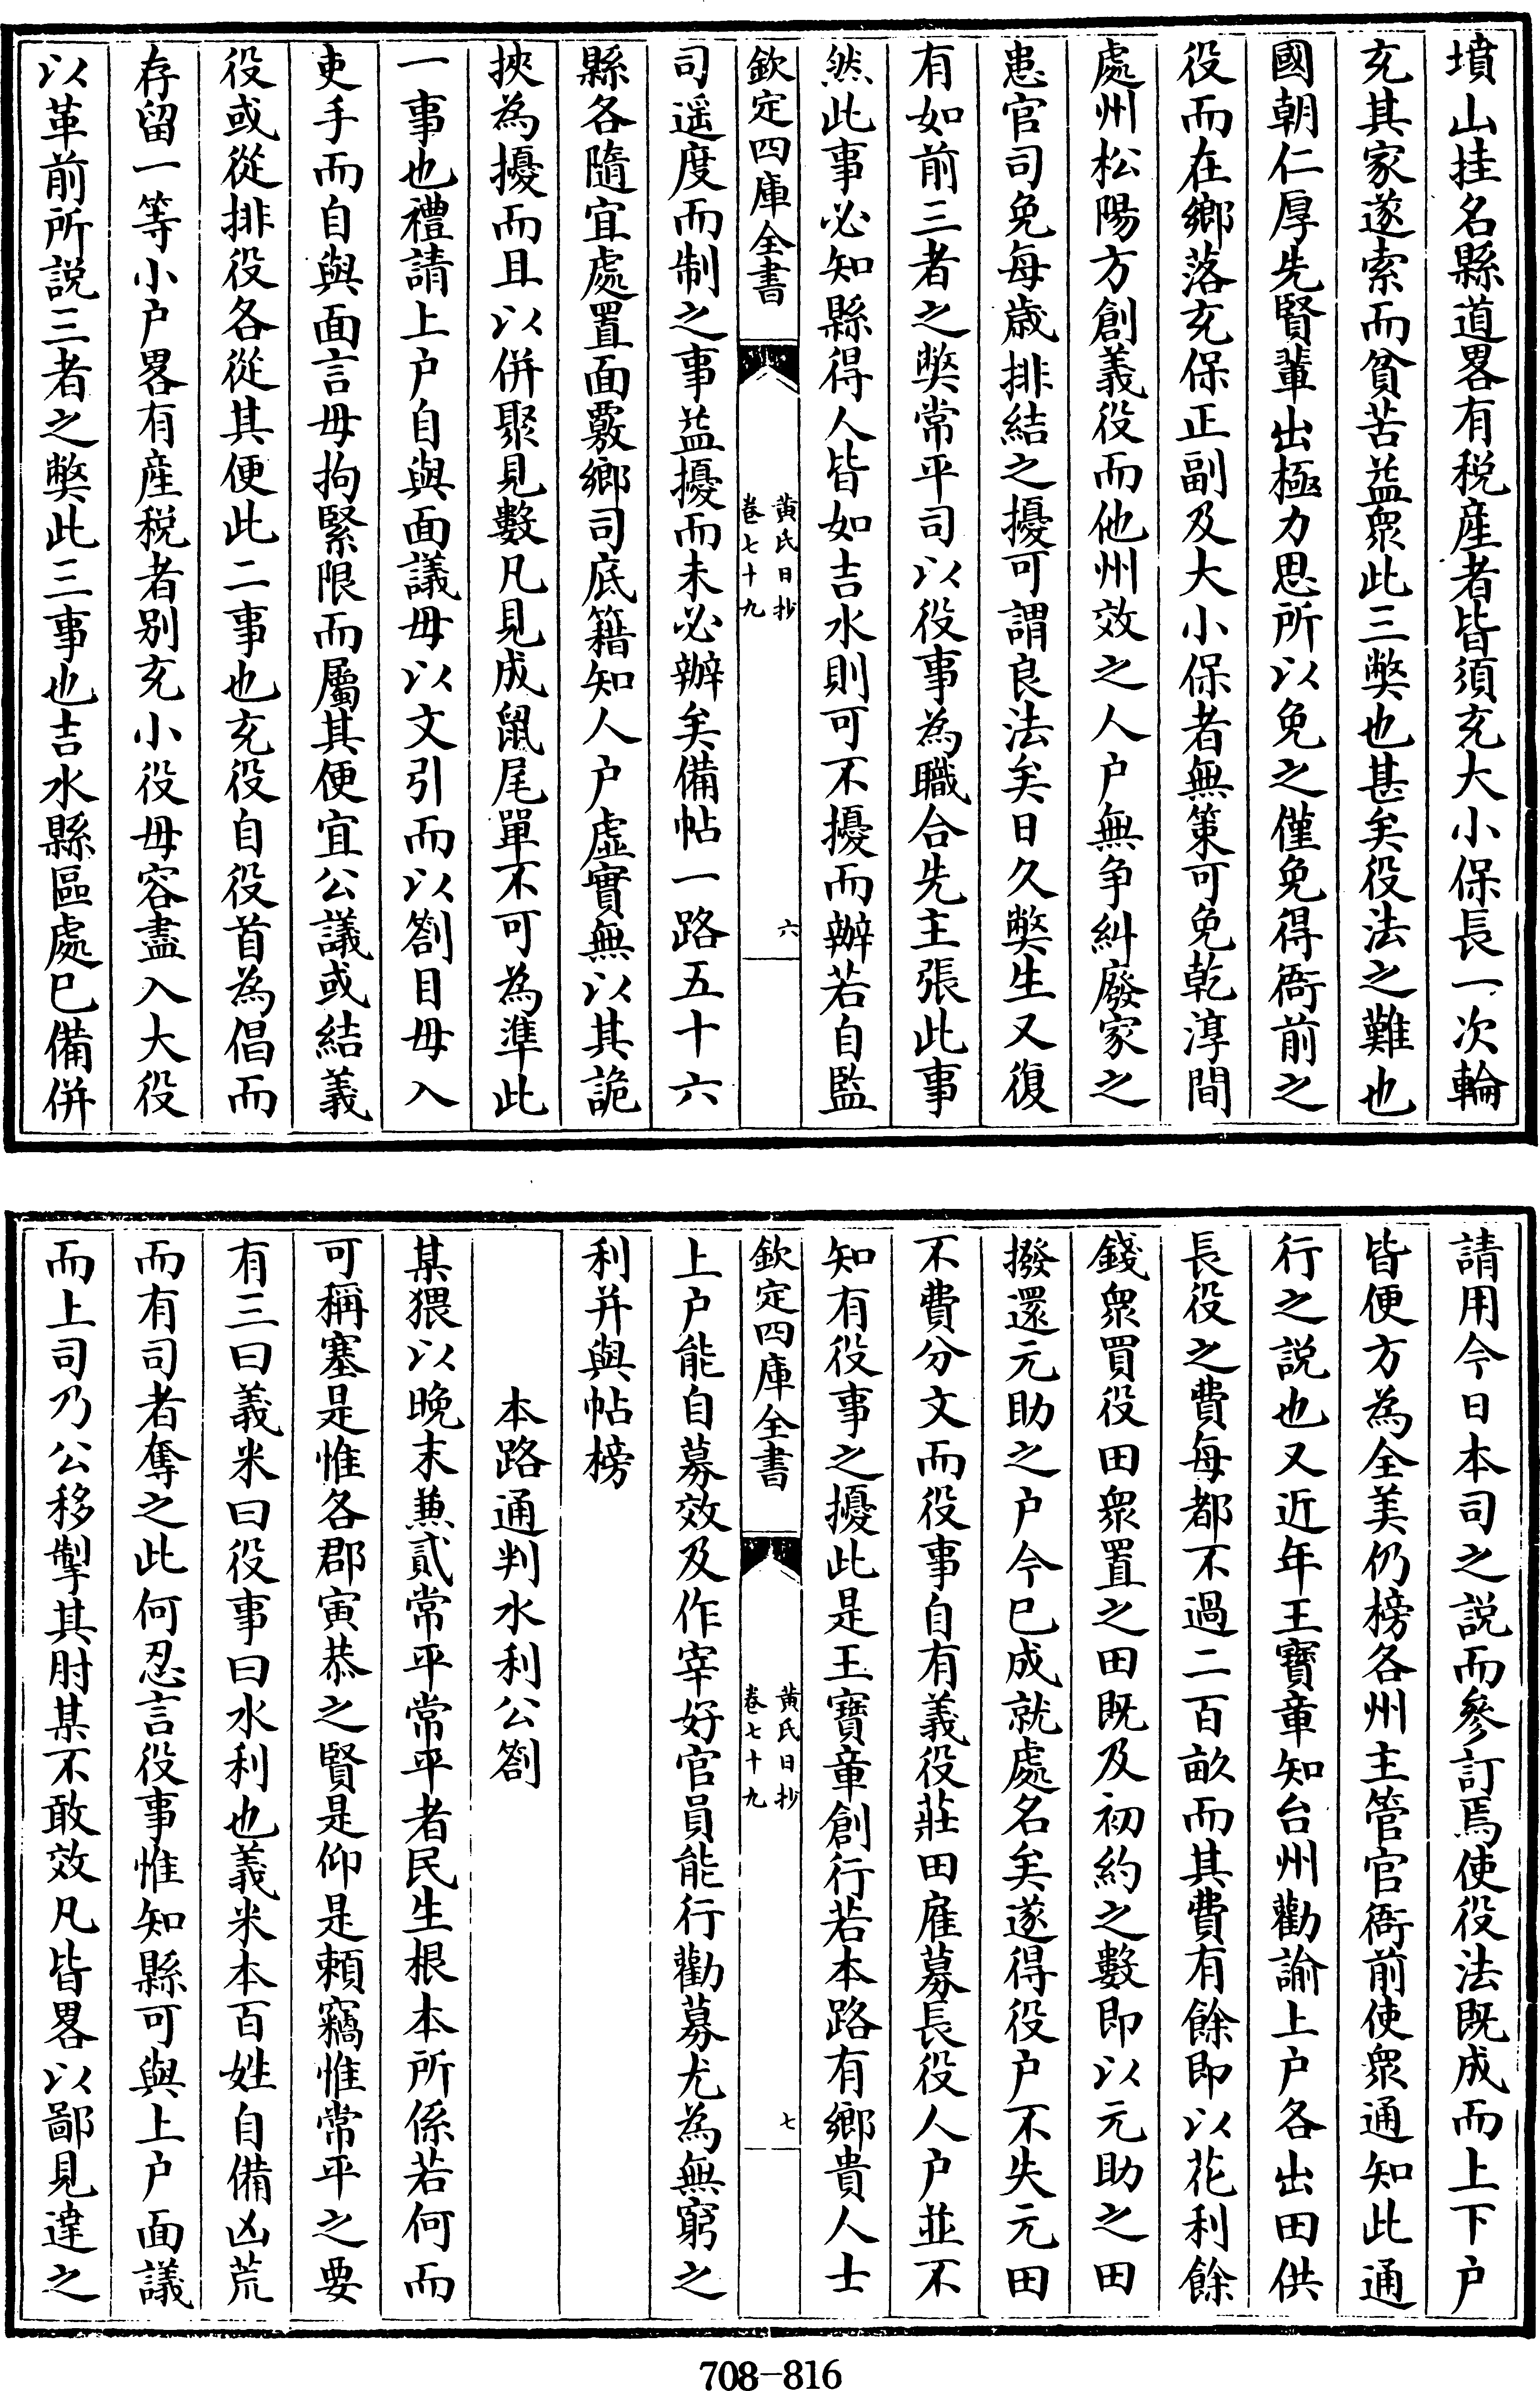 墳山挂名縣道畧有税産者皆須充大小保長一次輪
充其家遂索而貧苦益衆此三弊也甚矣役法之難也
國朝仁厚先賢輩出極力思所以免之僅免得衙前之
役而在鄉落充保正副及大小保者無策可免乾淳間
處州松陽方創義役而他州效之人户無爭糾廢家之
患官司免每歳排結之擾可謂良法矣日久弊生又復
有如前三者之弊常平司以役事為職合先主張此事
然此事必知縣得人皆如吉水則可不擾而辦若自監
欽定四庫全書
黄氏日抄
卷七十九
六
司遥度而制之事益擾而未必辦矣備帖一路五十六
縣各隨宜處置面覈鄉司底籍知人户虛實無以其詭
挾為擾而且以併聚見數凡見成鼠尾單不可為準此
一事也禮請上户自與面議毋以文引而以劄目毋入
吏手而自與面言毋拘緊限而屬其便宜公議或結義
役或從排役各從其便此二事也充役自役首為倡而
存留一等小户畧有産税者别充小役毋容盡入大役
以革前所説三者之弊此三事也吉水縣區處已備併
請用今日本司之説而參訂焉使役法既成而上下户
皆便方為全美仍榜各州主管官衙前使衆通知此通
行之説也又近年王寶章知台州勸諭上户各出田供
長役之費每都不過二百畝而其費有餘即以花利餘
錢衆買役田衆置之田既及初約之數即以元助之田
撥還元助之户今已成就處名矣遂得役户不失元田
不費分文而役事自有義役莊田雇募長役人户並不
知有役事之擾此是王寶章創行若本路有鄉貴人士
欽定四庫全書
黄氏日抄
卷七十九
七
上户能自募效及作宰好官員能行勸募尤為無窮之
利并與帖榜
本路通判水利公劄
某猥以晚末兼貳常平常平者民生根本所係若何而
可稱塞是惟各郡寅恭之賢是仰是頼竊惟常平之要
有三曰義米曰役事曰水利也義米本百姓自備凶荒
而有司者奪之此何忍言役事惟知縣可與上户面議
而上司乃公移掣其肘某不敢效凡皆畧以鄙見違之
708-816